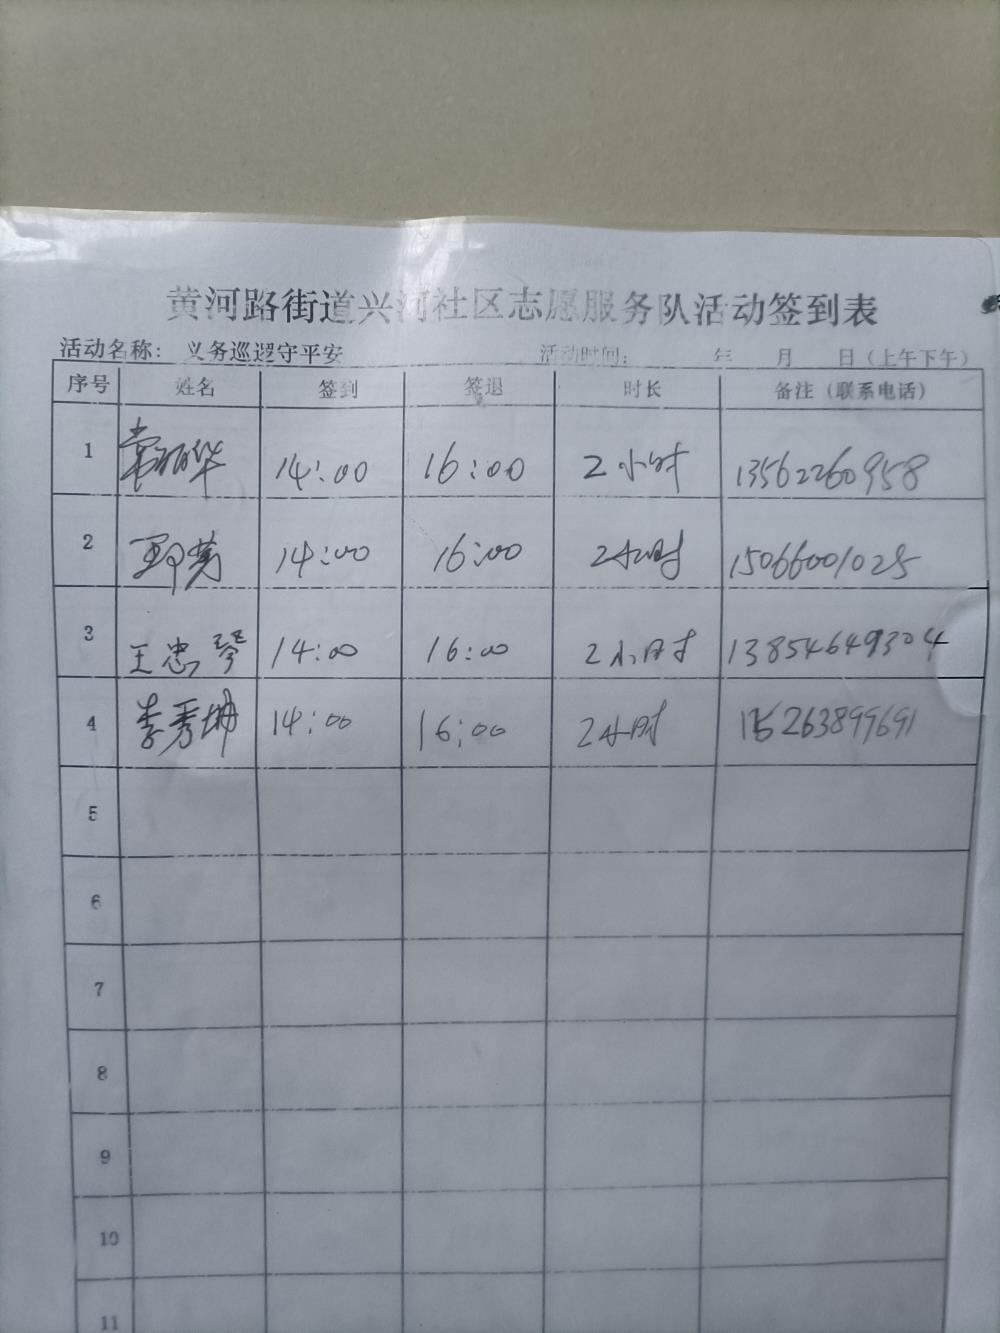 黄河路街道兴河社区志愿服务队活动签到表
活动名称： 义务巡逻守平安 活动时间： 年 月 日（上午下午）
序号 姓名 签到 签退 时长 备注（联系电话）
1 14:00 16:00 2小时 13562260958
2 14:00 16:00 2小时 15066001025
3 王忠琴 14:00 16:00 2小时 13854649304
4 李秀坤 14:00 16:00 2小时 15263899691
5
6
7
8
9
10
11